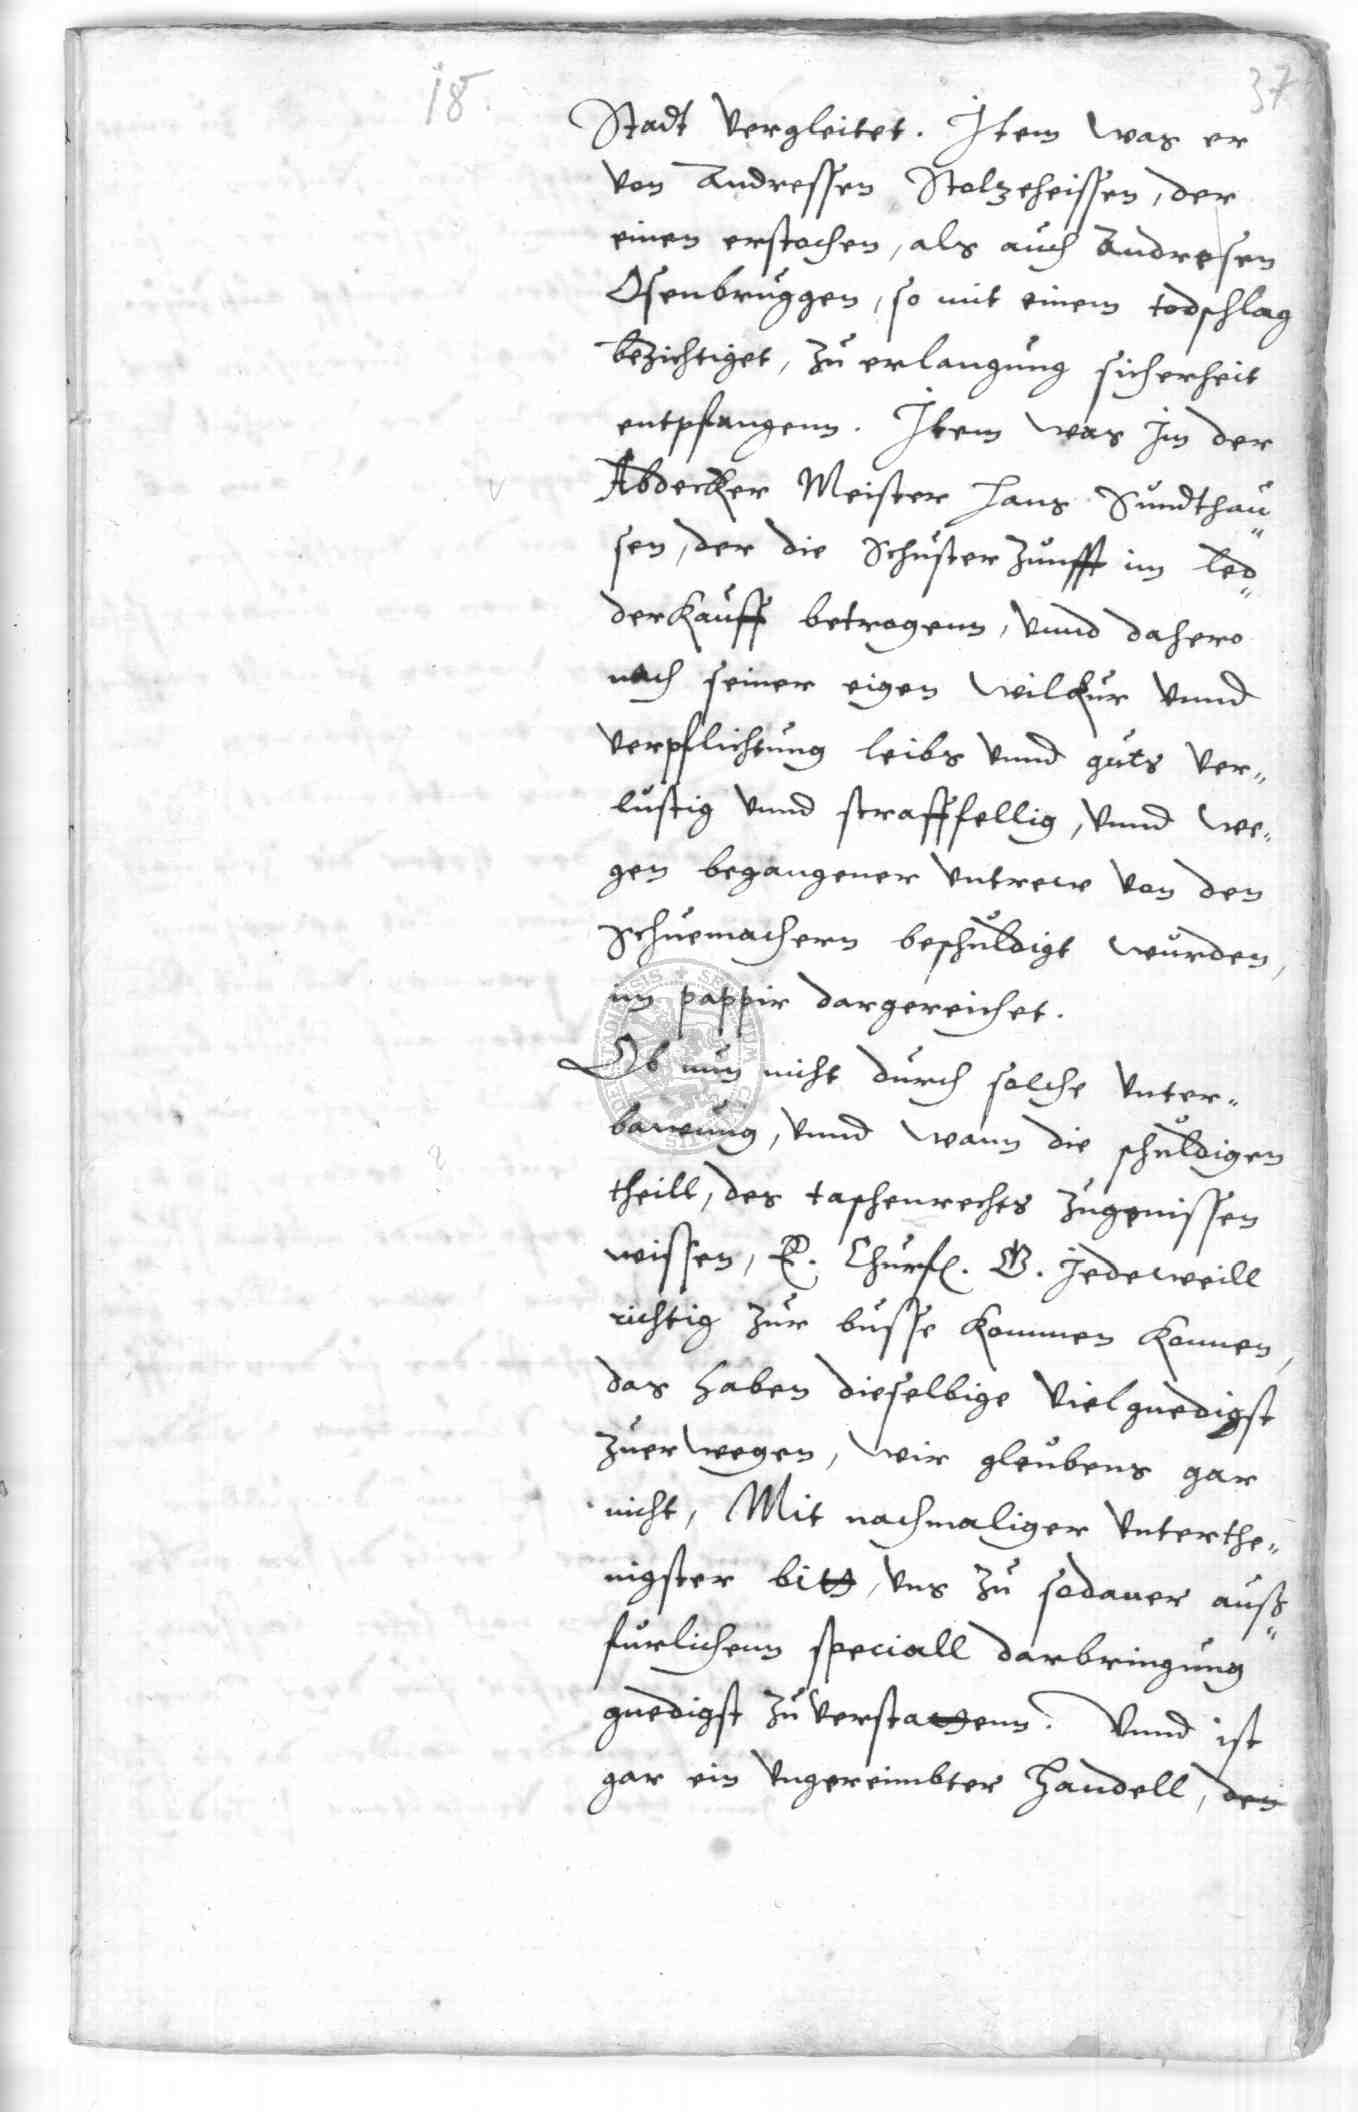 18.
37
Stadt vergleitet. Item was er
von Andressen Stolzeheissen, der
einen erstochen, als auch Andresen
Osenbruggen, so mit einem todschlag
bezichtiget, zu erlangung sicherheit
entpfangenn. Item was im der
Abdecker Meister Hans Sundthau„
sen, der die Schuster Zunfft im led„
derkauff betrogenn, vnnd dahero
nach seiner eigen wilkur vnnd
verpflichtung leibs vnnd guts ver„
lustig vnnd strafffellig, vnnd we„
gen begangener vntrew von den
Schuemachern beschuldigt wurden,
im pappir dargereichet.
Ob nun nicht durch solche vnter„
bawung, vnnd wann die schuldigen
theill, des taschenrechts zugenissen
wissen, E. Churfl. G. jedeweill
richtig zur busse kommen konnen,
das haben dieselbige viel gnedigst
zuerwegen, wir gleubens gar
nicht, Mit nachmaliger vnterthe„
nigster bitt, vns zu sodaner auß„
furlichenn speciall darbringung
gnedigst zu verstattenn. Vnnd ist
gar ein vngereimbter Handell, den